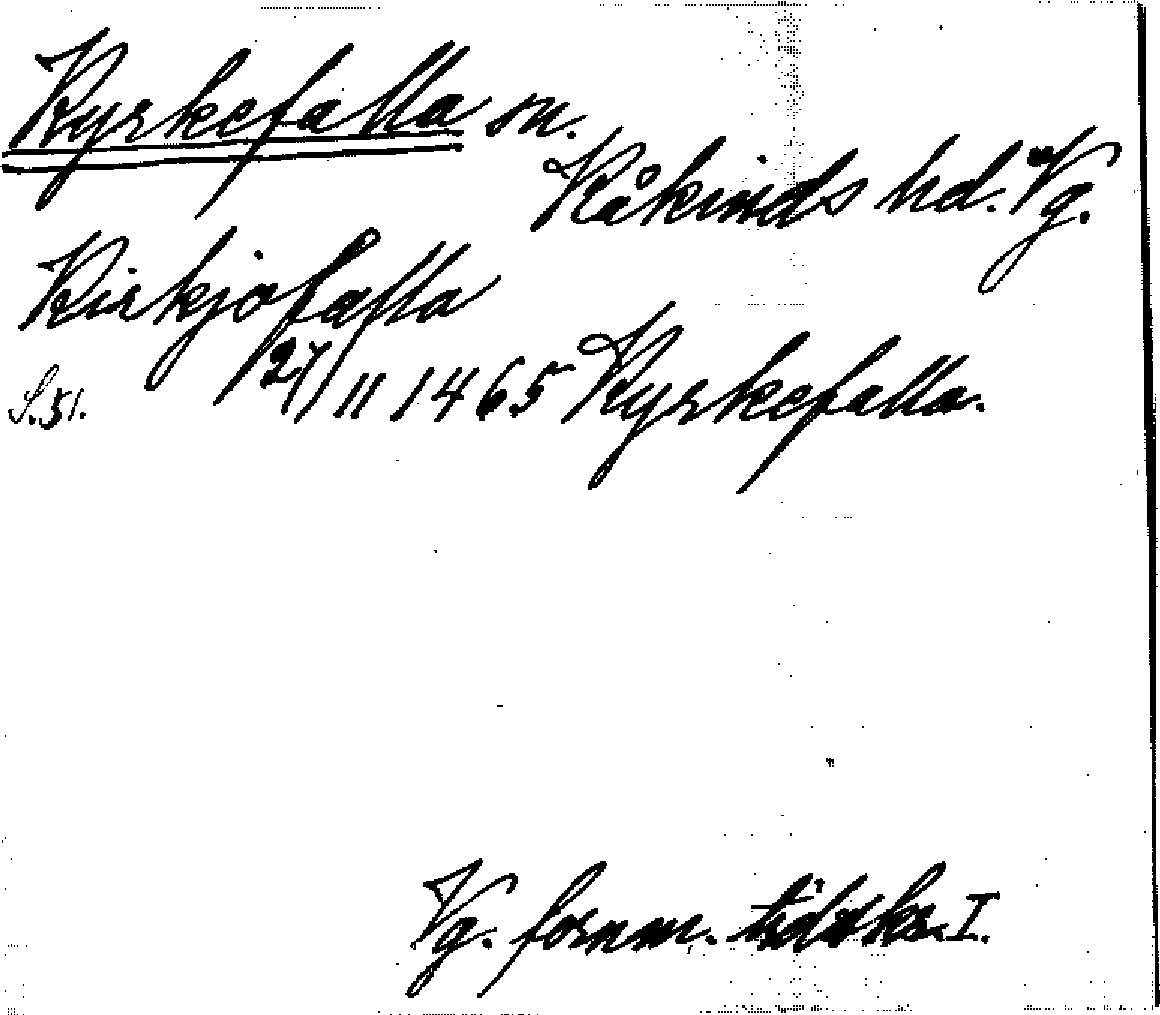 Kyrkefalla sn.
Kåkinds hd. Vg.
Kirkjofalla
S. 51. 27/11 1465 Kyrkefalla.
Vg. fornm. tidskr. I.